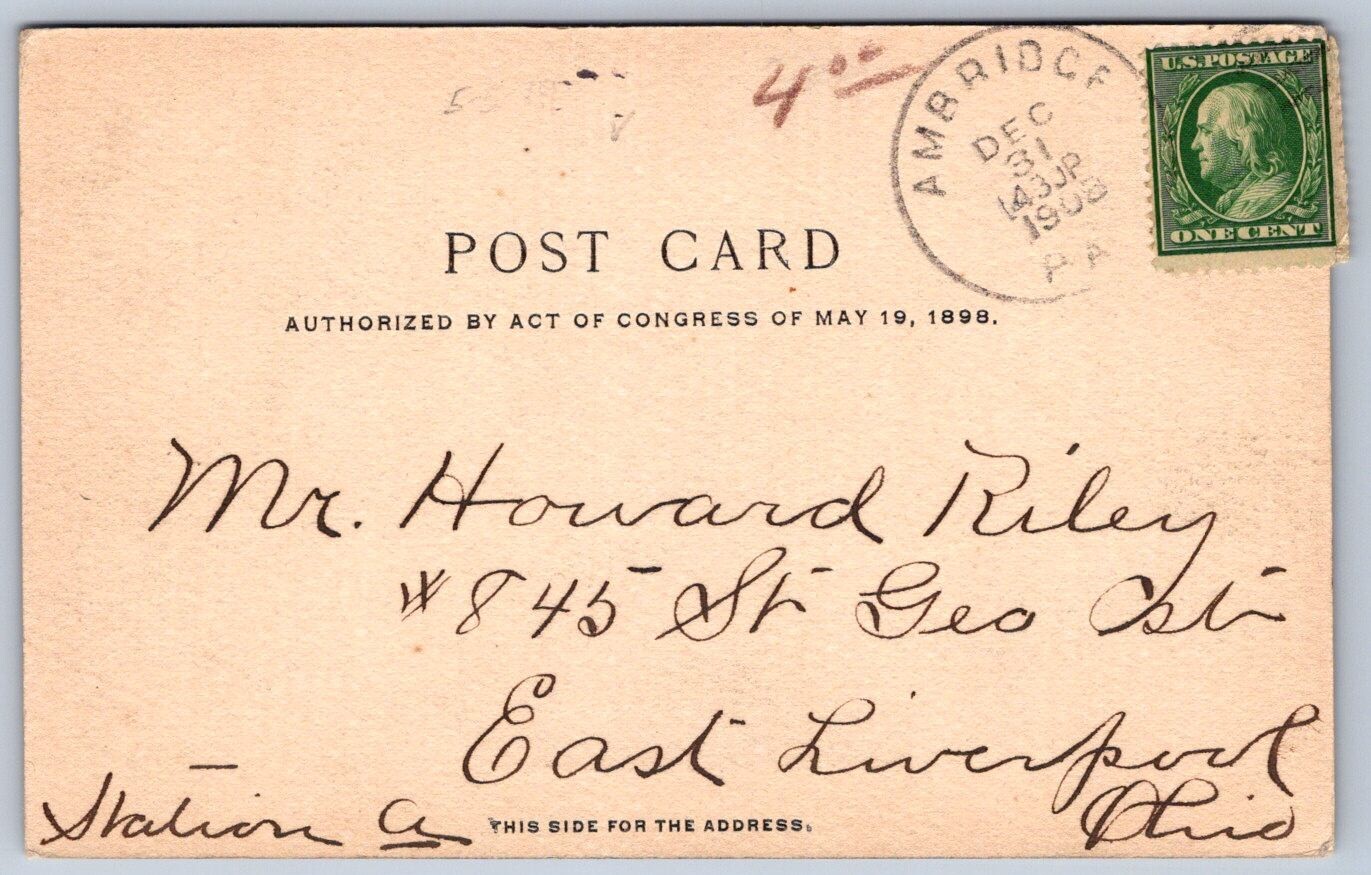 4⁰⁰
AMBRIDGE
DEC
31
430P
1908
PA
U.S. POSTAGE
ONE CENT
POST CARD
AUTHORIZED BY ACT OF CONGRESS OF MAY 19, 1898.
Mr. Howard Riley
#845 St Geo St
East Liverpool
Ohio
Station A
THIS SIDE FOR THE ADDRESS.